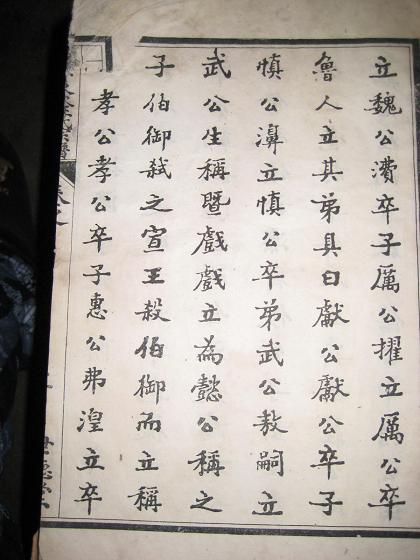 立魏公㵒卒子厲公擢立厲公卒
魯人立其弟具曰獻公獻公卒子
慎公濞立慎公卒弟武公敖嗣立
武公生稱暨戲戲立為懿公稱之
子伯御弒之宣王殺伯御而立稱
孝公孝公卒子惠公弗湟立卒
世德堂